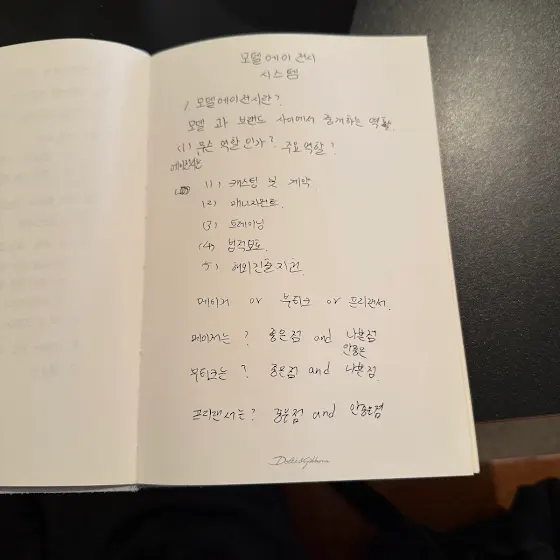 모델에이전시
시스템
1. 모델에이전시란?
모델 과 브랜드 사이에서 중개하는 역할.
(1) 무슨 역할인가? 주요역할?
1) 캐스팅 및 계약
(2) 매니지먼트.
(3) 트레이닝
(4) 법적보호.
5) 해외진출지원
메이저 or 부티크 or 프리랜서.
메이저는? 좋은점 and 나쁜점
안좋은
부티크는? 좋은점 and 나쁜점.
프리랜서는? 좋은점 and 안좋은점